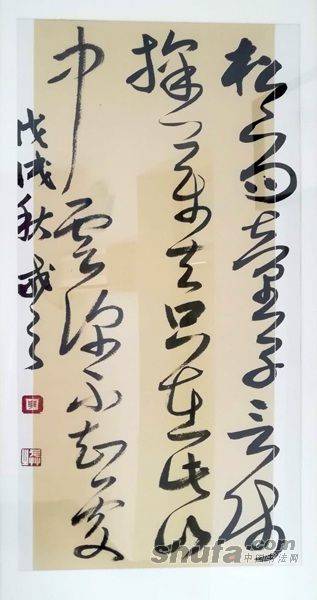 松下問童子言師
採藥去只在此山
中雲深不知處
戊戌秋
shufa.com
中国书法网